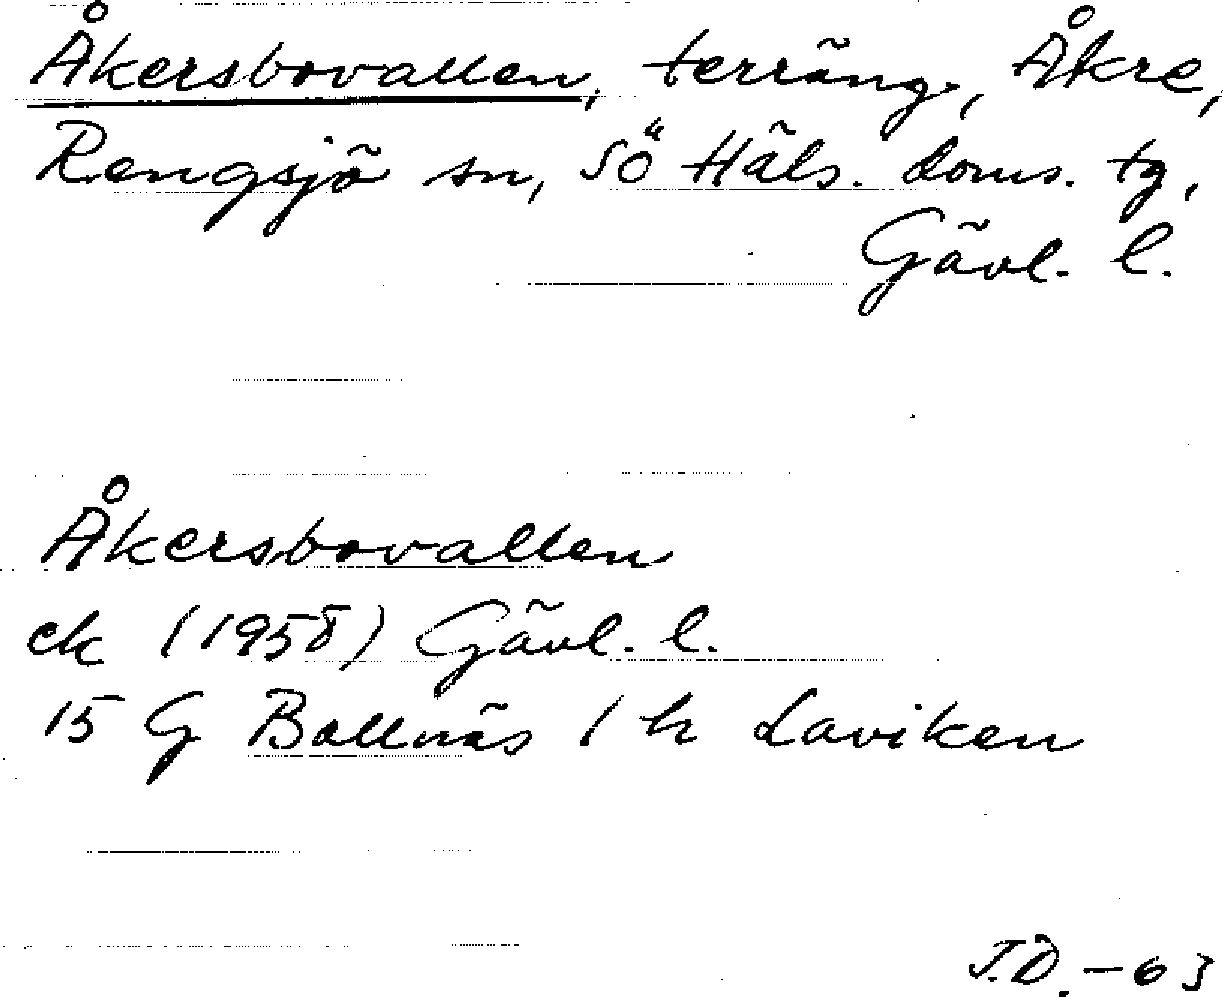 Åkersbovallen, terräng, Åkre,
Rengsjö sn, Sö Häls. doms. tg,
Gävl. l.
Åkersbovallen
ek (1958) Gävl. l.
15 G Bollnäs 1 h Laviken
J.D. -63